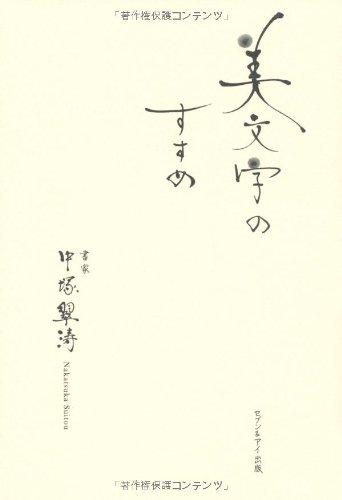 「著作権保護コンテンツ」
美文字の
すすめ
書家
中塚翠涛
Nakatsuka Suitou
セブン&アイ出版
「著作権保護コンテンツ」